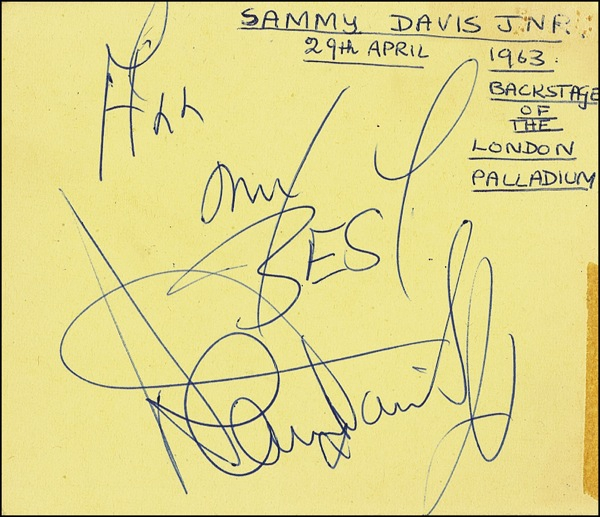 SAMMY DAVIS JNR.
29th APRIL 1963.
BACKSTAGE
OF
THE
LONDON
PALLADIUM
All
my
BEST
Sammy Davis Jr